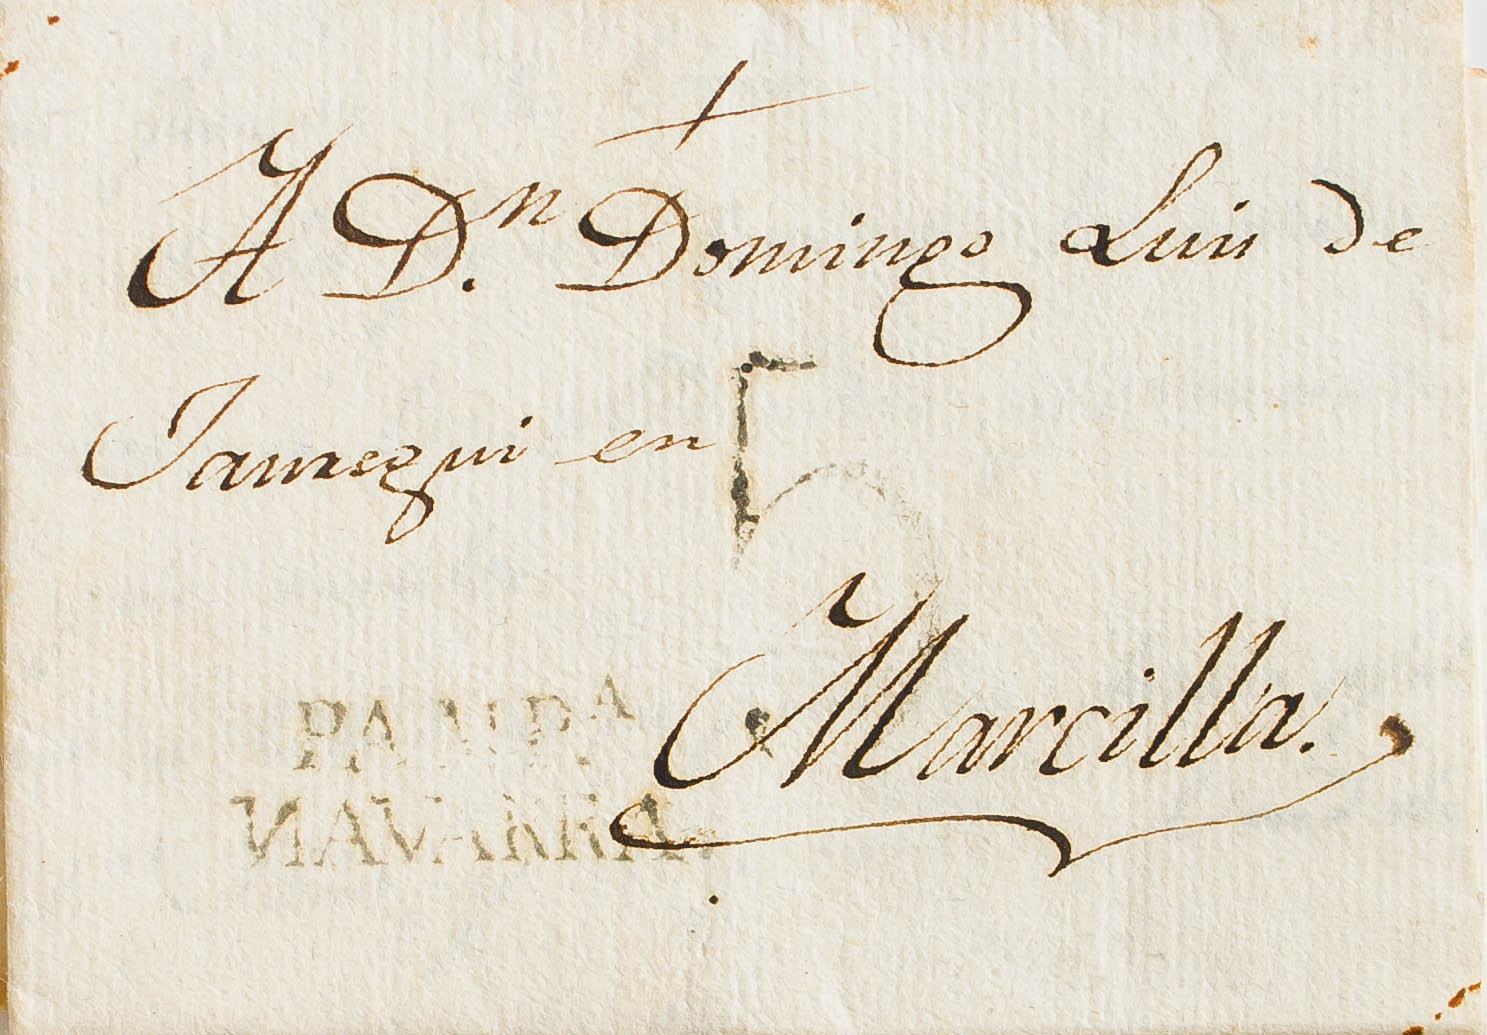 A Dn. Domingo Luis de
Jauregui en
5
Marcilla.
PAMPA
NAVARRA.